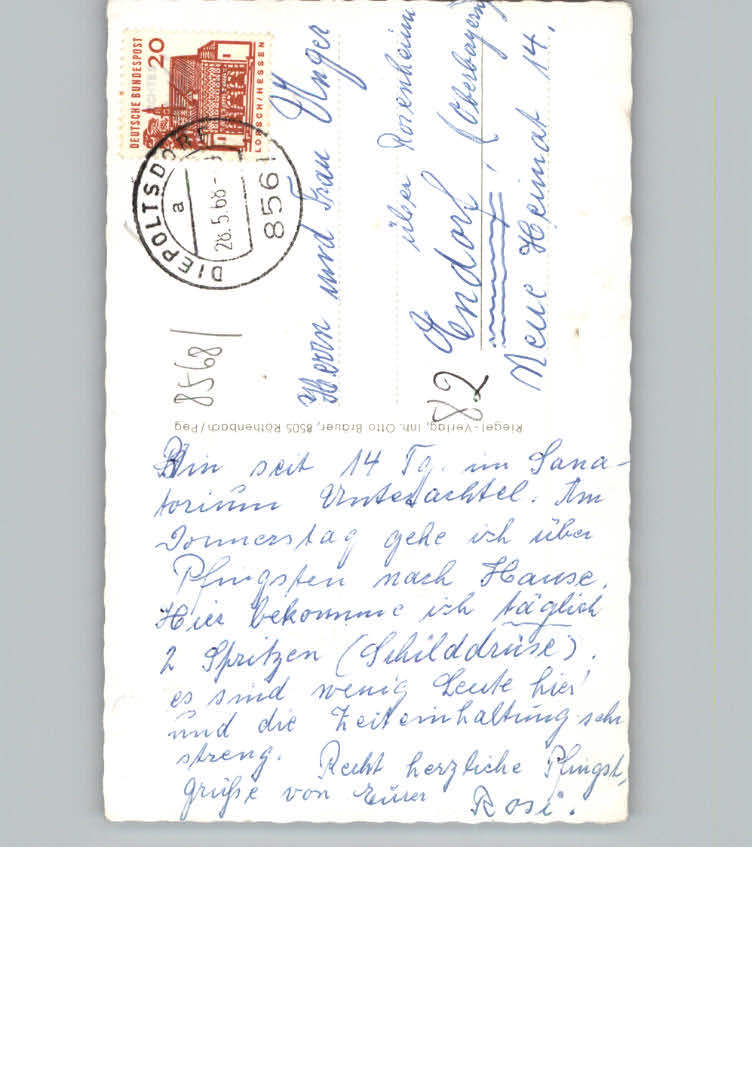 Bin seit 14 Tg. im Sana-
torium Unterachtel. Am
Donnerstag gehe ich über
Pfingsten nach Hause.
Hier bekomme ich täglich
2 Spritzen (Schilddrüse).
es sind wenig Leute hier
und die Zeiteinhaltung sehr
streng. Recht herzliche Pfingst-
grüße von Eurer Rosi.
Riegel-Verlag, Inh. Otto Bräuer, 8505 Röthenbach/Peg
8568/
DEUTSCHE BUNDESPOST
20
LORSCH/HESSEN
DIEPOLTSDORF
a
28.5.68-
8561
Herrn und Frau Unger
über Rosenheim
82 Endorf, (Oberbayern)
Neue Heimat 14.